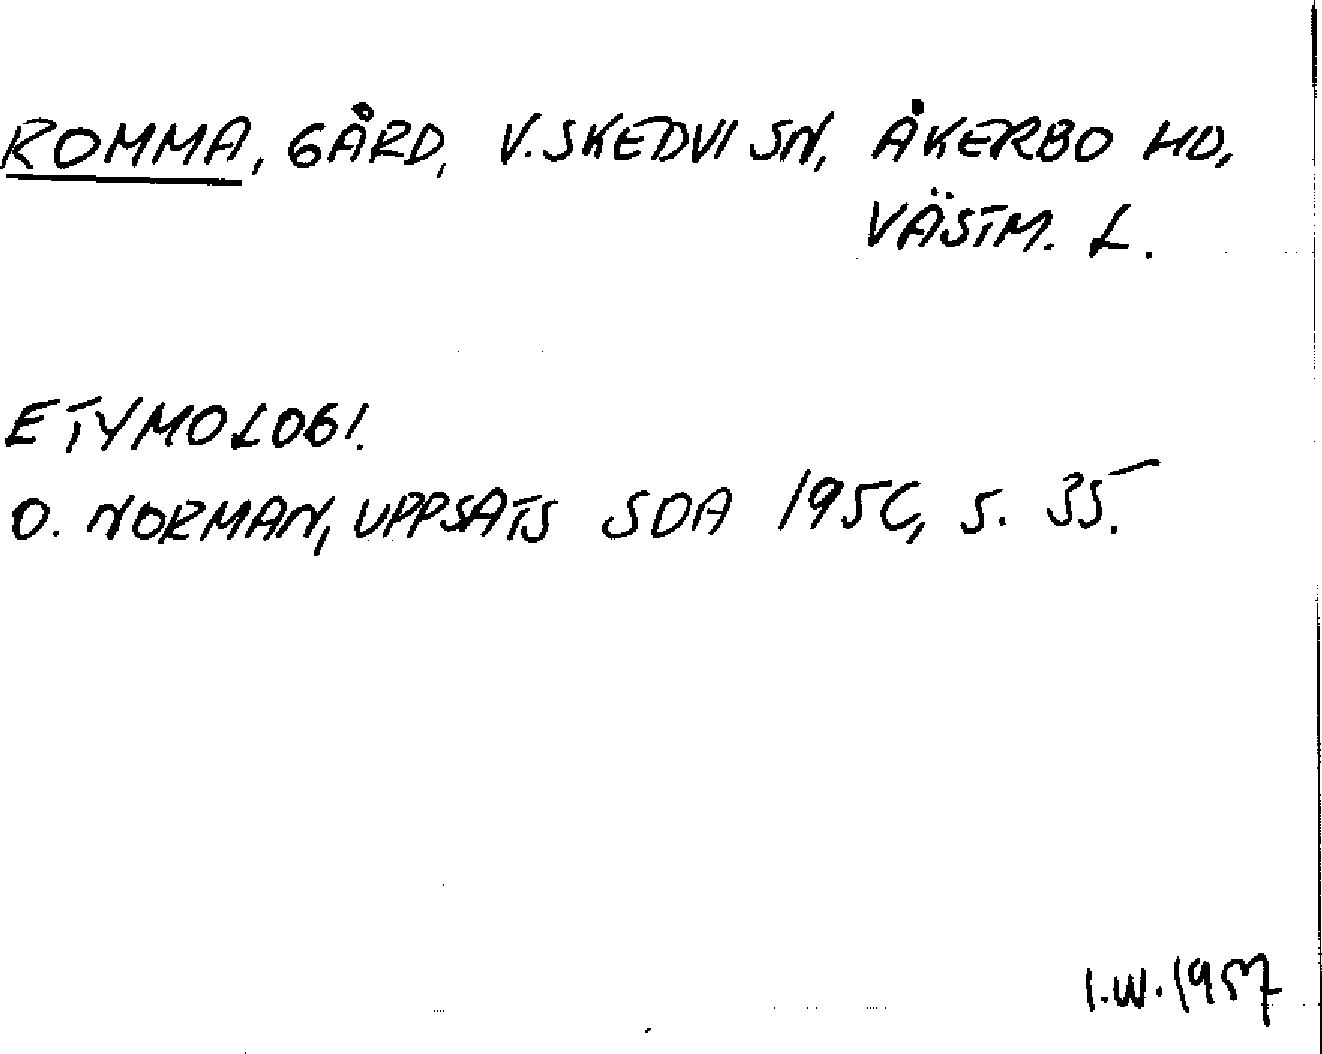 ROMMA, GÅRD, V. SKEDVI SN, ÅKERBO HD,
VÄSTM. L.
ETYMOLOGI.
O. NORMAN, UPPSATS SOA 1956, S. 35.
I.W. 1957